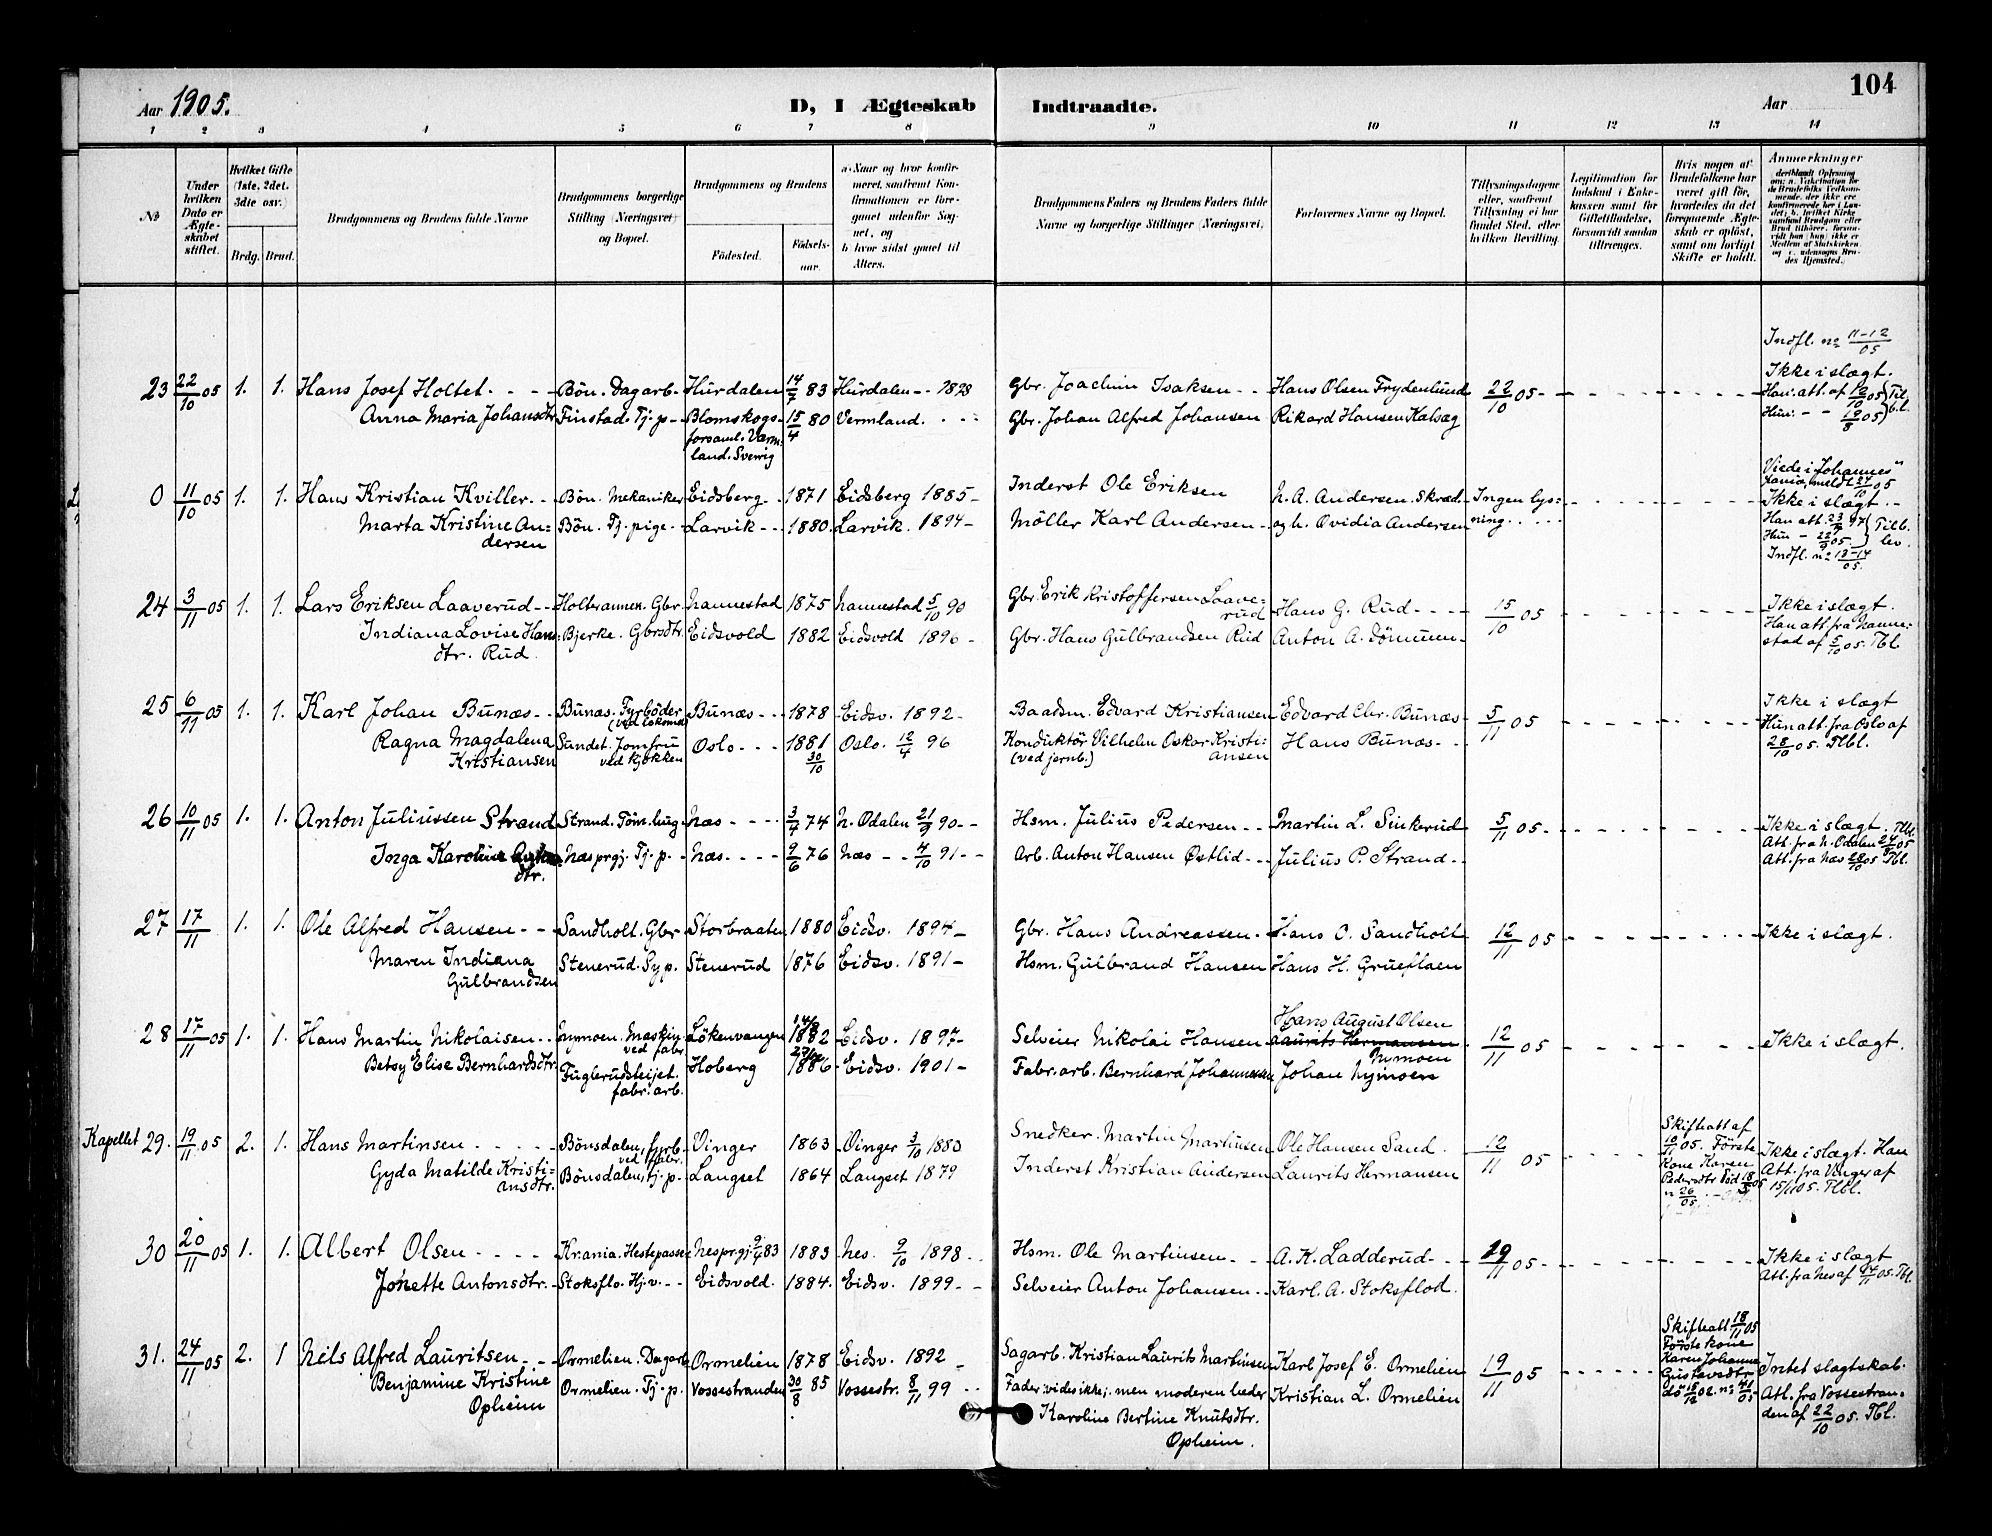 104
Aar 1905.
D, I Ægteskab Indtraadte.
Aar
1 2 3 4 5 6 7 8 9 10 11 12 13 14
No
Under hvilken Dato er Ægte-skabet stiftet.
Hvilket Gifte (1ste, 2det, 3die osv.)
Brdg. Brud.
Brudgommens og Brudens fulde Navne
Brudgommens borgerlige Stilling (Næringsvei) og Bopæl.
Brudgommens og Brudens
Födested.
Födsels-aar.
a. Naar og hvor konfir-meret, saafremt Kon-firmationen er fore-gaaet udenfor Sog-net, og
b. hvor sidst gaaet til Alters.
Brudgommens Faders og Brudens Faders fulde Navne og borgerlige Stillinger (Næringsvei).
Forlovernes Navne og Bopæl.
Tillysningsdagene eller, saafremt Tillysning ei har fundet Sted, efter hvilken Bevilling.
Legitimation for Indskud i Enke-kassen samt for Giftetilladelse, forsaavidt saadan tiltrænges.
Hvis nogen af Brudefolkene har været gift för, hvorledes da det foregaaende Ægte-skab er oplöst, samt om lovligt Skifte er holdt.
Anmerkninger
Indfl. no 11-12/05
23 22/10 05 1. 1. Hans Josef Holtet Bön. Dagarb. Hurdalen 14/7 83 Hurdalen 1898 Gbr. Joachim Isaksen Hans Olsen Frydenlund 22/10 05 Ikke i slægt.
Anna Maria Johansdtr Finstad. Tj. p. Blomskogs- 15/4 80 Vermland. Gbr. Johan Alfred Johansen Rikard Hansen Kalsæg Han: att. af 12/10 05 Til
forsaml. Værm-land. Sverrig Hun: 19/8 05 bl.
0 11/10 05 1. 1. Hans Kristian Kviller. Bön. Mekaniker Eidsberg. 1871 Eidsberg 1885 Inderst Ole Eriksen N. A. Andersen. Skræd. Ingen lys-ning Viede i "Johannes"
Ikke i slægt.
Marta Kristine An-dersen Bön. Tj. pige Larvik 1880 Larvik. 1894 Möller Karl Andersen og h. Ovidia Andersen Han att. 23/9 97 Tilb.
Hun 22/9 05. lev.
Indfl. no 13-14/05.
24 3/11 05 1. 1. Lars Eriksen Laaverud Holbrannen. Gbr. Nannestad 1875 Nannestad 5/10 90 Gbr. Erik Kristoffersen Laave-rud Hans G. Rud 15/10 05 Ikke i slægt.
Indiana Lovise Hans-dtr. Rud. Bjerke. Gbrsdtr. Eidsvold 1882 Eidsvold 1896 Gbr. Hans Gulbrandsen Rud Anton A. Han att. fra Nanne-stad af 5/10 05. Tbl.
25 6/11 05 1. 1. Karl Johan Bunæs Bunæs. Fyrböder (ved lokomd. Bunæs 1878 Eidsv. 1892 Baadsm. Edvard Kristiansen Edvard Chr. Bunæs 5/11 05 Ikke i slægt
Ragna Magdalena Kristiansen Sundet. Jomfru ved kjökken Oslo 1881 30/10 Oslo. 12/4 96 Konduktör Vilhelm Oskar Kristi-ansen (ved jernb.) Hans Bunæs Hun att. fra Oslo af 28/10 05. Tlbl.
26 10/11 05 1. 1. Anton Juliussen Strand Strand. Töm.hug. Næs 3/4 74 N. Odalen 21/9 90 Hsm. Julius Pedersen Martin L. Sinkerud 5/11 05 Ikke i slægt. Tlbl.
Att. fra N. Odalen 24/8 05
Inga Karoline dtr. Næs prgj. Tj. p. Næs. 9/6 76 Næs 4/10 91 Arb. Anton Hansen Østlid Julius P. Strand Att. fra Næs 28/10 05 Tbl.
27 17/11 1. 1. Ole Alfred Hansen Sandholt. Gbr. Storbraaten 1880 Eidsv. 1894 Gbr. Hans Andreassen Hans O. Sandholt 12/11 05 Ikke i slægt.
Maren Indiana Gulbrandsen Stenerud. Syp. Stenerud 1876 Eidsv. 1891 Hsm. Gulbrand Hansen Hans H. Grueflaen
28 17/11 05 1. 1. Hans Martin Nikolaisen Maskin. ved fabr Lökenvangen 14/8 1882 Eidsv. 1897 Selveier Nikolai Hansen Hans August Olsen Nymoen 12/11 05 Ikke i slægt.
Laurits Hermansen
Betsy Elise Bernhardsdtr. Fuglerudsteiet. fabr. arb. Hoberg 1886 Eidsv. 1901 Fabr. arb. Bernhard Johannessen Johan Nymoen
Kapellet 29. 19/11 05 2. 1. Hans Martinsen Bönsdalen, fyrb. ved fabr. Vinger 1863 Vinger 3/10 1880 Snedker. Martin Martinsen Ole Hansen Sand. 12/11 05 Skifteatt af 10/11 05. Förste Kone Karen Pedersdtr död 18/3 05 n 26/05 Ikke i slægt. Han
Gyda Matilde Kristi-ansdtr. Bönsdalen, tj. p. Langset 1864 Langset 1879 Inderst Kristian Andersen Laurits Hermansen Att. fra Vinger af 15/11 05. Tlbl.
30 20/11 05 1. 1. Albert Olsen Kr.ania. Hestepasser Nes prgj. 9/4 83 1883 Nes. 9/10 1898 Hsm. Ole Martinsen A. K. Ladderud 19/11 05 Ikke i slægt
Jonette Antonsdtr. Stoksflo. Hj. v. Eidsvold. 1884. Eidsv. 1899 Selveier Anton Johansen Karl. A. Stoksflod. Att. fra Nes af 14/11 05. Tbl
31. 24/11 05 2. 1 Nils Alfred Lauritsen Ormelien. Dagarb. Ormelien 1878 Eidsv. 1892 Sagarb. Kristian Laurits Martinsen Karl Josef E. Ormelien 19/11 05 Skifteatt 18/11 05 Förste kone Karen Johanne Gustavsdtr. dö 15/12 02. no 41/05 Intet slagtskab.
Benjamine Kristine Opheim Ormelien. Tj. p. Vossestranden 30/8 85 Vossestr. 8/11 99 Fader vides ikke, men moderen heder Kristian L. Ormelien Att. fra Vossestran-den af 22/10 05. Tbl.
Karoline Bertine Knutsdtr. Opheim.